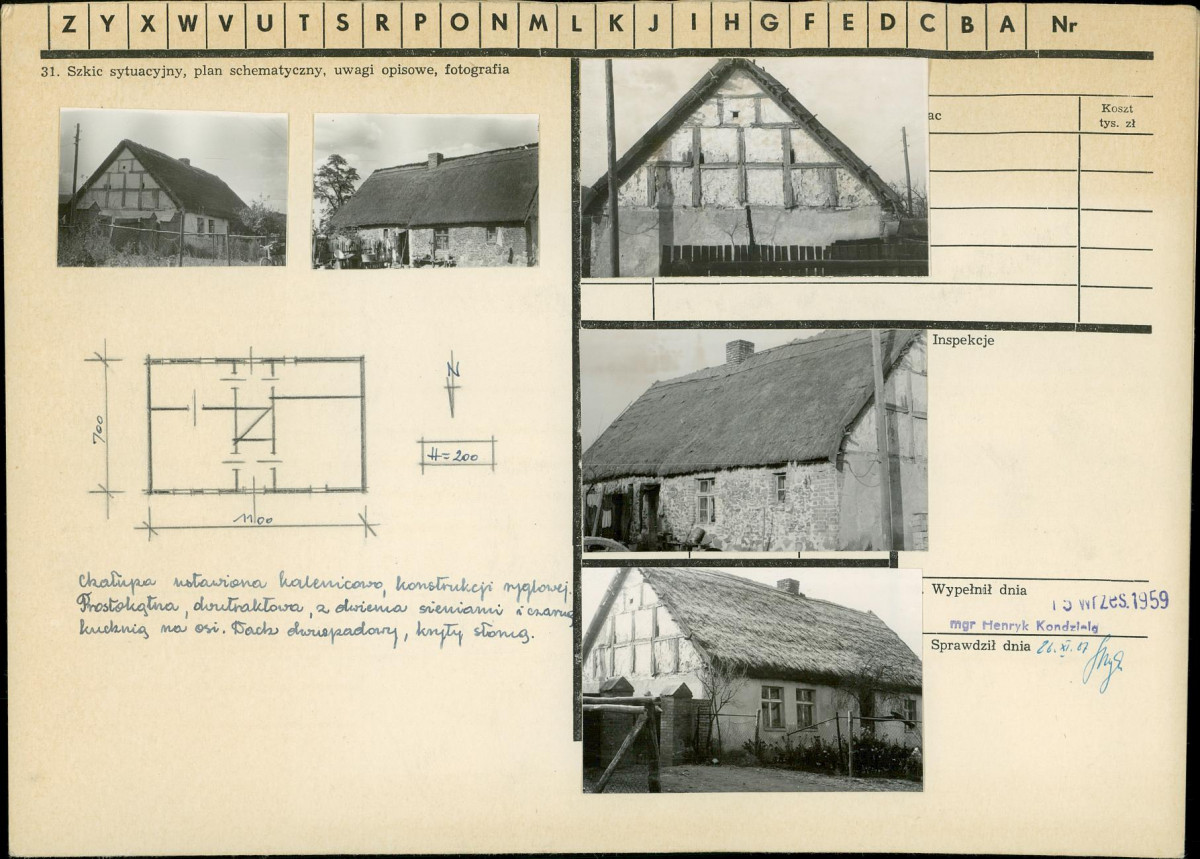 Z Y X W V U T S R P O N M L K J I H G F E D C B A Nr
31. Szkic sytuacyjny, plan schematyczny, uwagi opisowe, fotografia
ac
Koszt
tys. zł
Inspekcje
N
700
H=200
1100
Chałupa ustawiona kalenicowo, konstrukcji ryglowej.
Prostokątna, dwutraktowa, z dwiema sieniami i czarną
kuchnią na osi. Dach dwuspadowy, kryty słomą.
Wypełnił dnia
15 WRZES. 1959
mgr Henryk Kondziela
Sprawdził dnia 26.XI.